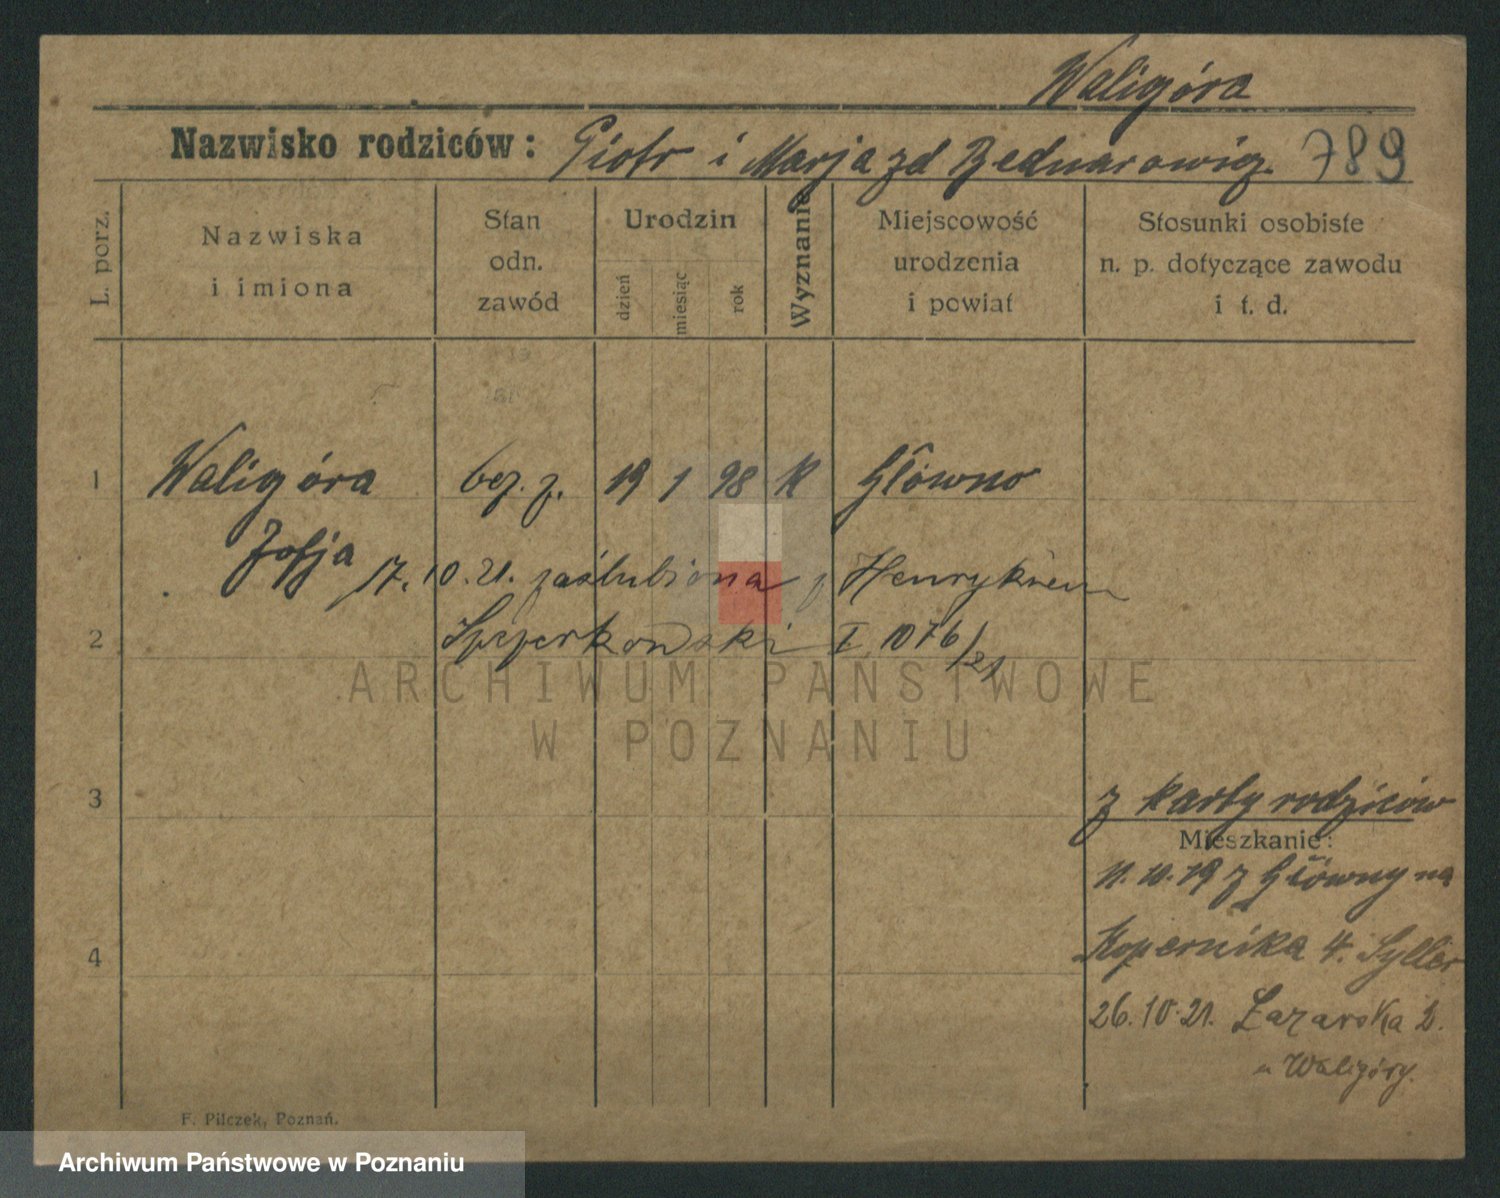 Waligóra
Nazwisko rodziców: Piotr i Marja zd Bednarowicz. 789
L. porz.
Nazwiska i imiona
Stan odn. zawód
Urodzin
dzień
miesiąc
rok
Wyznanie
Miejscowość urodzenia i powiat
Stosunki osobiste n. p. dotyczące zawodu i t. d.
1 Waligóra bez. z. 19 1 98 k Główno
Zofja 17.10.21. zaślubiona z Henrykiem
2 I 1076/21
ARCHIWUM PAŃSTWOWE
W POZNANIU
3 z karty rodziców
Mieszkanie:
11.10.19 z Główny na
4 Kopernika 4. Syller
26.10.21. Łazarska 2.
u Waligóry.
F. Pilczek, Poznań.
Archiwum Państwowe w Poznaniu